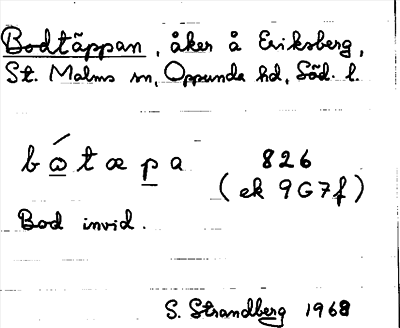 Bodtäppan, åker å Eriksberg,
St. Malms sn, Oppunda hd, Söd. l.
bó̲tæp̲a 826
(ek 9G7f)
Bod invid.
S. Strandberg 1968